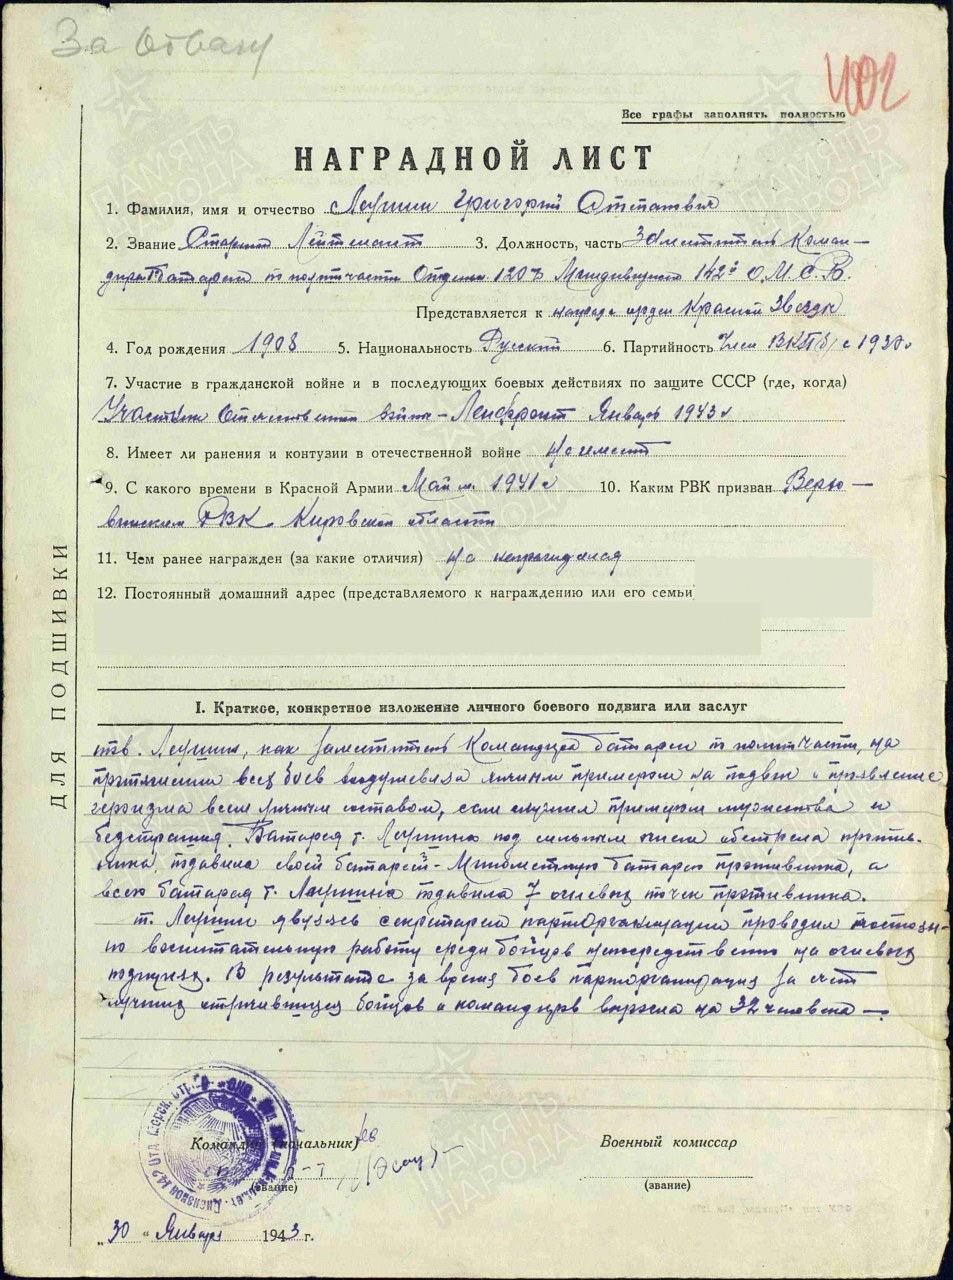 За Отвагу
402
Все графы заполнять полностью
НАГРАДНОЙ ЛИСТ
1. Фамилия, имя и отчество Григорий
2. Звание Старший Лейтенант 3. Должность, часть Заместитель Коман-
дира Батареи по политчасти Отдельн. 120 142й О.М.С.Б.
Представляется к награде орден Красной Звезды
4. Год рождения 1908 5. Национальность Русский 6. Партийность Член ВКП(б) с
7. Участие в гражданской войне и в последующих боевых действиях по защите СССР (где, когда)
Участник Отечественной войны – Ленфронт Январь 1943 г
8. Имеет ли ранения и контузии в отечественной войне Не имеет
9. С какого времени в Красной Армии Май м. 1941 г 10. Каким РВК призван
РВК Кировской области
11. Чем ранее награжден (за какие отличия) Не
12. Постоянный домашний адрес (представляемого к награждению или его семьи
ДЛЯ ПОДШИВКИ
I. Краткое, конкретное изложение личного боевого подвига или заслуг
как Заместитель Командира батареи по политчасти, на
протяжении всех боев воодушевлял личным примером на подвиг и проявление
героизма всем личным составом, сам служил примером мужества и
бесстрашия. Батарея т. под сильным огнем обстрела против-
ника, подавила своей батареей – Минометную батарею противника, а
всего батарея т. подавила 7 огневых точек противника.
т. являясь секретарем парторганизации проводил постоян-
но воспитательную работу среди бойцов непосредственно на огневых
позициях. В результате за время боев парторганизация за счет
лучших отличившихся бойцов и командиров выросла на 32 человека —
Командир (начальник)
(звание)
Военный комиссар
(звание)
„30" Января 1943 г.
ПАМЯТЬ НАРОДА